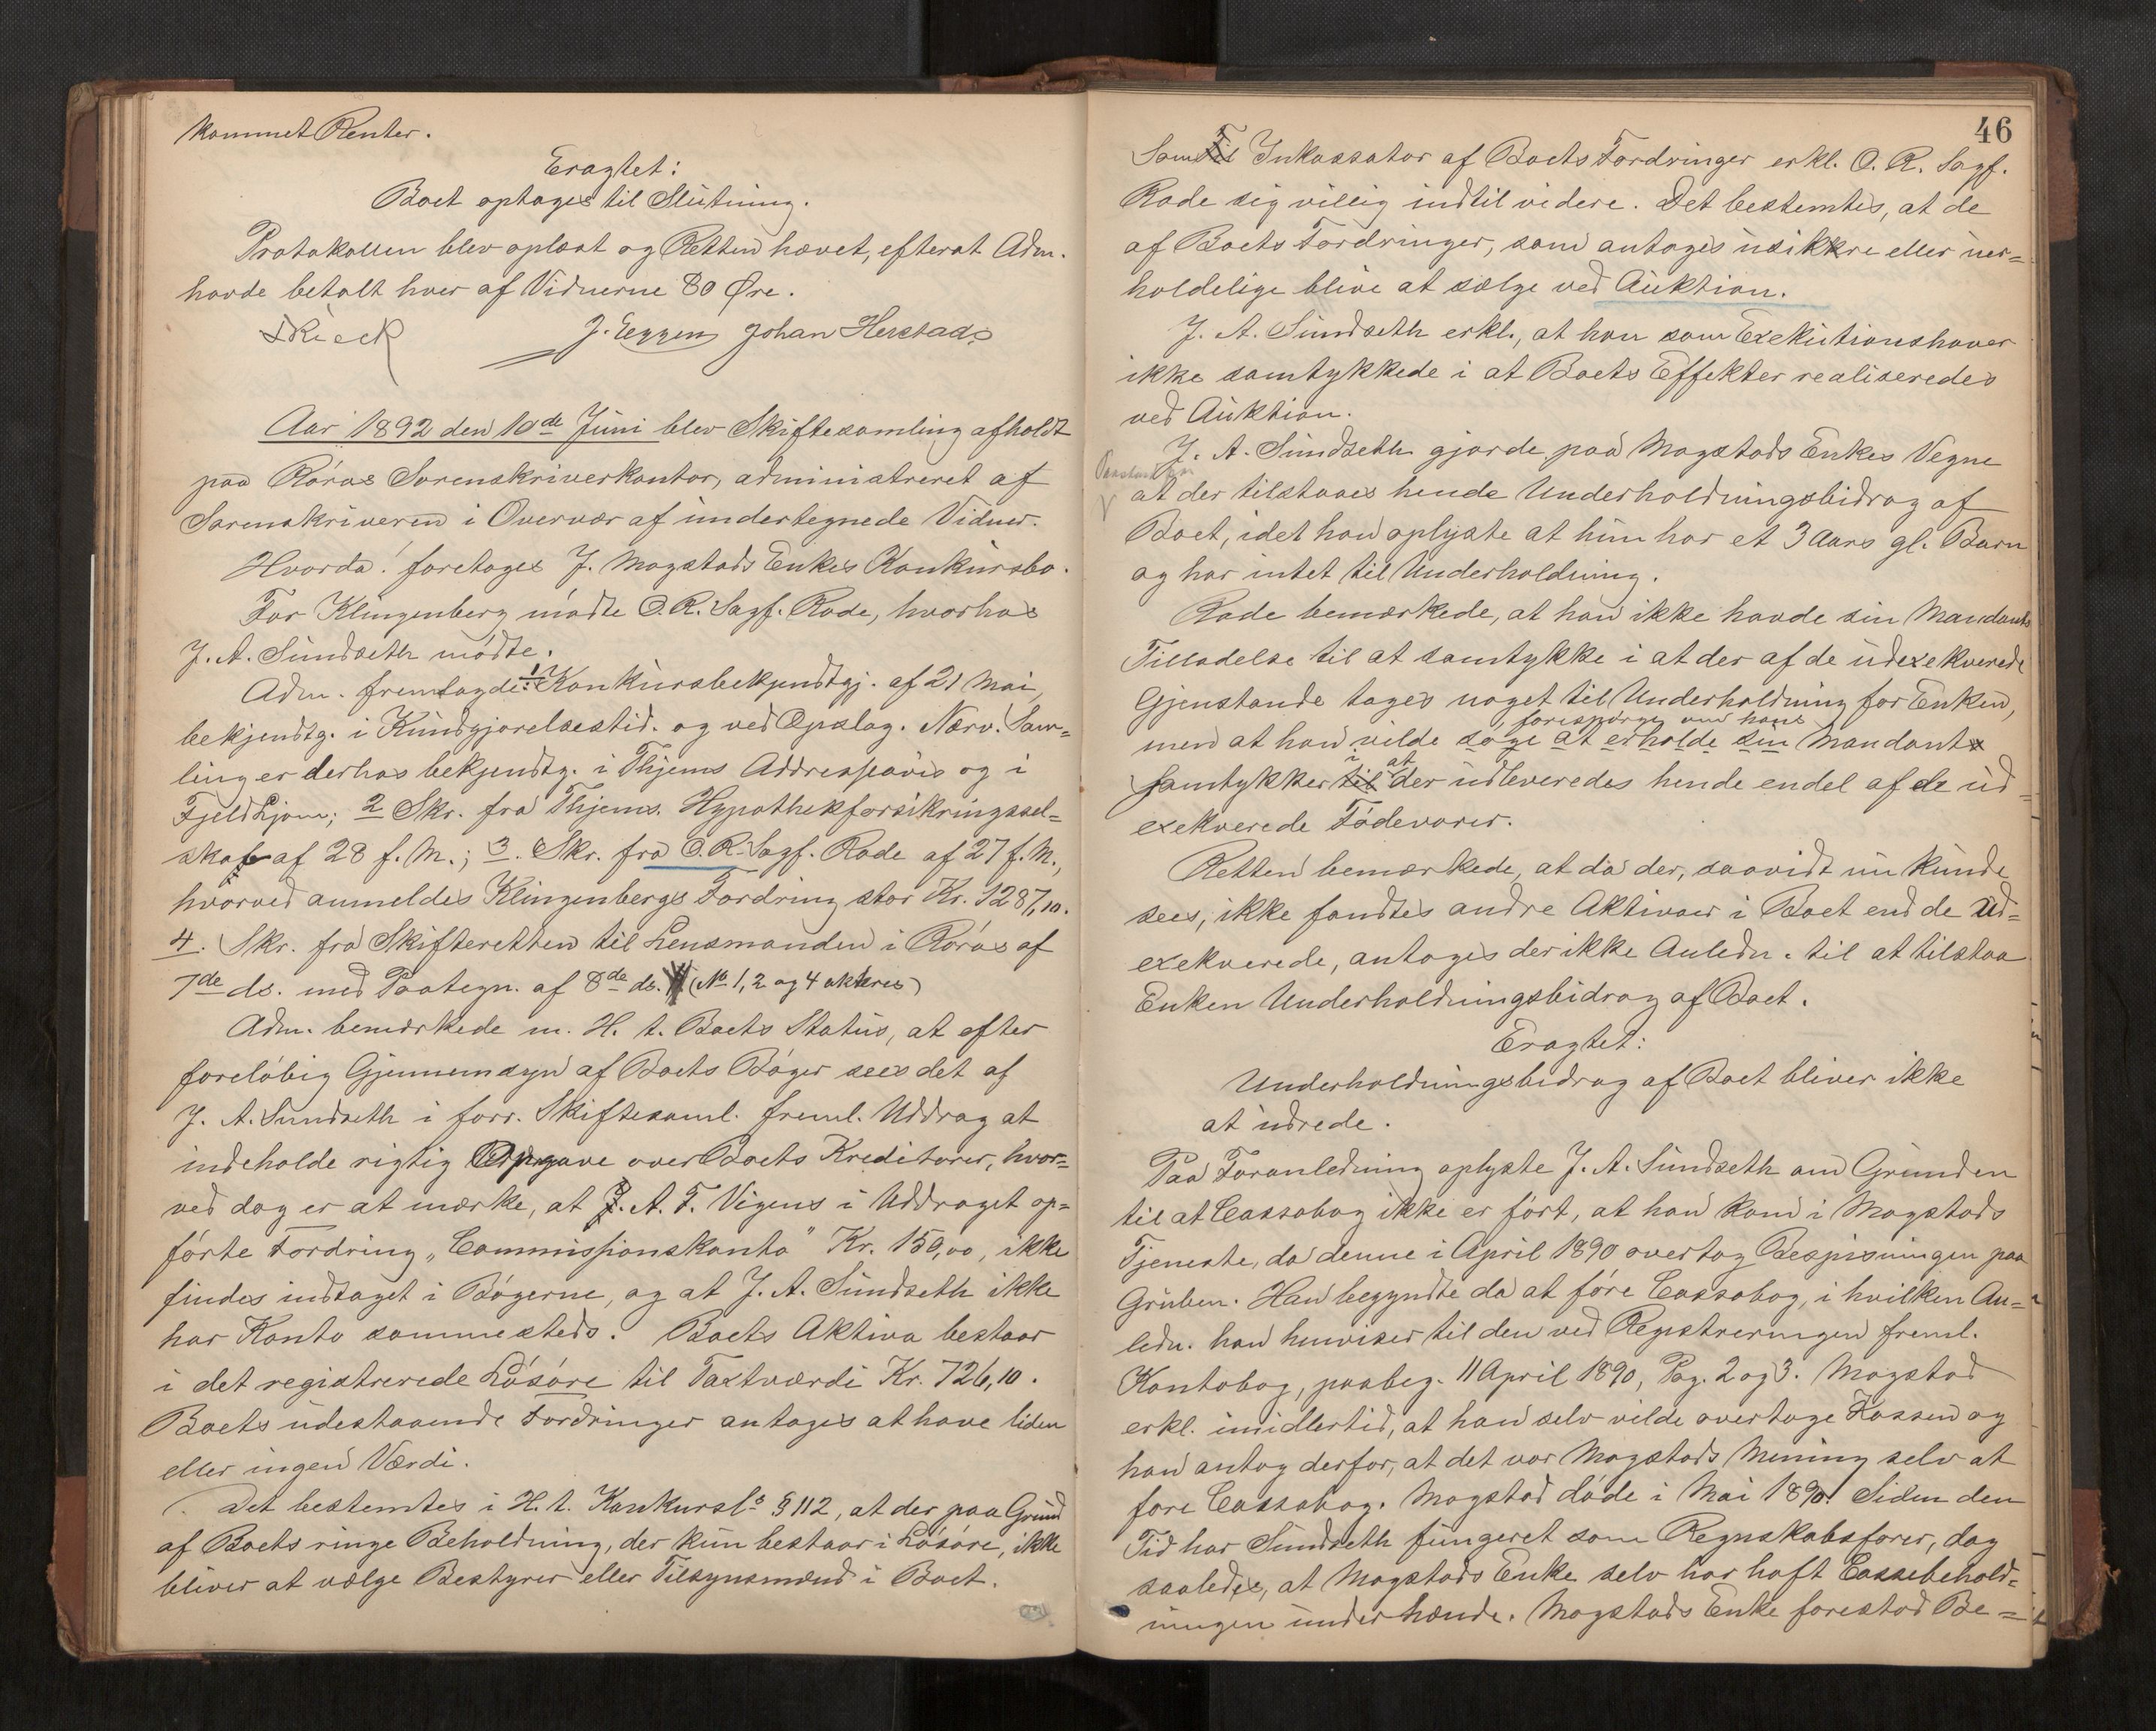 kommet Renter.
Eragtet:
Boet optages til Slutning.
Protokollen blev oplæst og Retten hævet, efterat Adm.
havde betalt hver af Vidnerne 80 Øre.
J. Eggen Johan Herstad
Aar 1892 den 10de Juni blev Skiftesamling afholdt
paa Røros Sorenskriverkontor, administreret af
Sorenskriveren i Overvær af undertegnede Vidner.
Hvorda! foretages J. Magstads Enkes Konkursbo.
For Klingenberg mødte O.R. Sagf. Rode, hvorhos
J. A. Sundseth mødte.
Adm. fremlagde: 1 Konkursbekjendtgj. af 21 Mai,
bekjendtg. i Kundgjørelsestid. og ved Opslag. Nærv. Sam=
ling er derhos bekjendtg. i Thjems Addresseavis og i
Fjeld-Ljom; 2 Skr. fra Thjems. Hypothekforsikringssel=
skab af 28 f. M.; 3. Skr. fra O.R. Sagf. Rode af 27 f. M.,
hvorved anmeldes Klingenbergs Fordring stor Kr. 1287,10.
4. Skr. fra Skifteretten til Lensmanden i Røros af
7de ds. med Paategn. af 8de ds. (No 1, 2 og 4 akteres)
Adm. bemærkede m. H. t. Boets Status, at efter
foreløbig Gjennemsyn af Boets Bøger sees det af
J. A. Sundseth i forr. Skiftesaml. freml. Uddrag at
indeholde rigtig Opgave over Boets Kreditorer, hvor=
ved dog er at mærke, at J. A. F. Vigens i Uddraget op=
førte Fordring „Commissionskonto" Kr. 150,00, ikke
findes indtaget i Bøgerne, og at J. A. Sundseth ikke
har Konto sammesteds. Boets Aktiva bestaar
i det registrerede Løsøre til Taxtværdi Kr. 726,10.
Boets udestaaende Fordringer antages at have liden
eller ingen Værdi.
Det bestemtes i H. t. Konkursls § 112, at der paa Grund
af Boets ringe Beholdning, der kun bestaar i Løsøre, ikke
bliver at vælge Bestyrer eller Tilsynsmænd i Boet.
46
Som Til Inkassator af Boets Fordringer erkl. O. R. Sagf.
Rode sig villig indtil videre. Det bestemtes, at de
af Boets Fordringer, som antages usikkre eller uer=
holdelige blive at sælge ved Auktion.
J. A. Sundseth erkl., at han som Exekutionshaver
ikke samtykkede i at Boets Effekter realiseredes
ved Auktion.
J. A. Sundseth gjorde paa Magstads Enkes Vegne
Paastand om
at der tilstaaes hende Underholdningsbidrag af
Boet, idet han oplyste at hun har et 3 Aars gl. Barn
og har intet til Underholdning.
Rode bemærkede, at han ikke havde sin Mandants
Tilladelse til at samtykke i at der af de udexekverede
Gjenstande tages noget til Underholdning for Enken,
forespørge om hans
men at han vilde søge at erholde sin Mandants
i at
samtykker til der udleveredes hende endel af de ud=
exekverede Fødevarer.
Retten bemærkede, at da der, saavidt nu kunde
sees, ikke fandtes andre Aktivaer i Boet end de ud=
exekverede, antages der ikke Anledn. til at tilstaa
Enken Underholdningsbidrag af Boet.
Eragtet:
Underholdningsbidrag af Boet bliver ikke
at udrede.
Paa Foranledning oplyste J. A. Sundseth om Grunden
til at Cassabog ikke er ført, at han kom i Magstads
Tjeneste, da denne i April 1890 overtog Bespisningen paa
Gruben. Han begyndte da at føre Cassabog, i hvilken An=
ledn. han henviser til den ved Registreringen freml.
Kontobog, paabeg. 11 April 1890, Pag. 2 og 3. Magstad
erkl. imidlertid, at han selv vilde overtage Kassen og
han antog derfor, at det var Magstads Mening selv at
føre Cassabog. Magstad døde i Mai 1890. Siden den
Tid har Sundseth fungeret som Regnskabsfører, dog
saaledes, at Magstads Enke selv har haft Cassebehold=
ningen under hænde. Magstads Enke forestod Be=